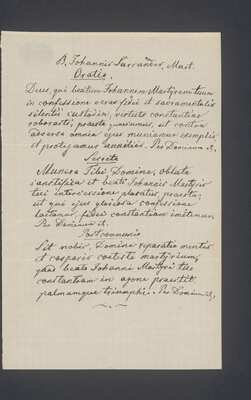 B. Johannis Sarcander, Mart.
Oratio.
Deus, qui beatum Johannem Martyrem tuum
in confessione verae fidei et sacramentalis
silentii custodia, virtute constantiae
roborasti; praesta, ut contra
adversa omnia ejus muniamur exemplis
et protegamur auxiliis. Per Dominum etc.
Secreta
Munera Tibi Domine, oblata
sanctifica et beati Johannis Martyris
tui intercessione placatus praesta;
ut qui ejus gloriosa confessione
laetamur, fidei constantiam imitemur.
Per Dominum etc.
Postcommunio
Sit nobis, Domine reparatio mentis
et corporis coeleste mysterium;
quod beato Johanni Martyri tuo
constantiam in agone praestitit
palmamque triumphi. Per Dominum etc.